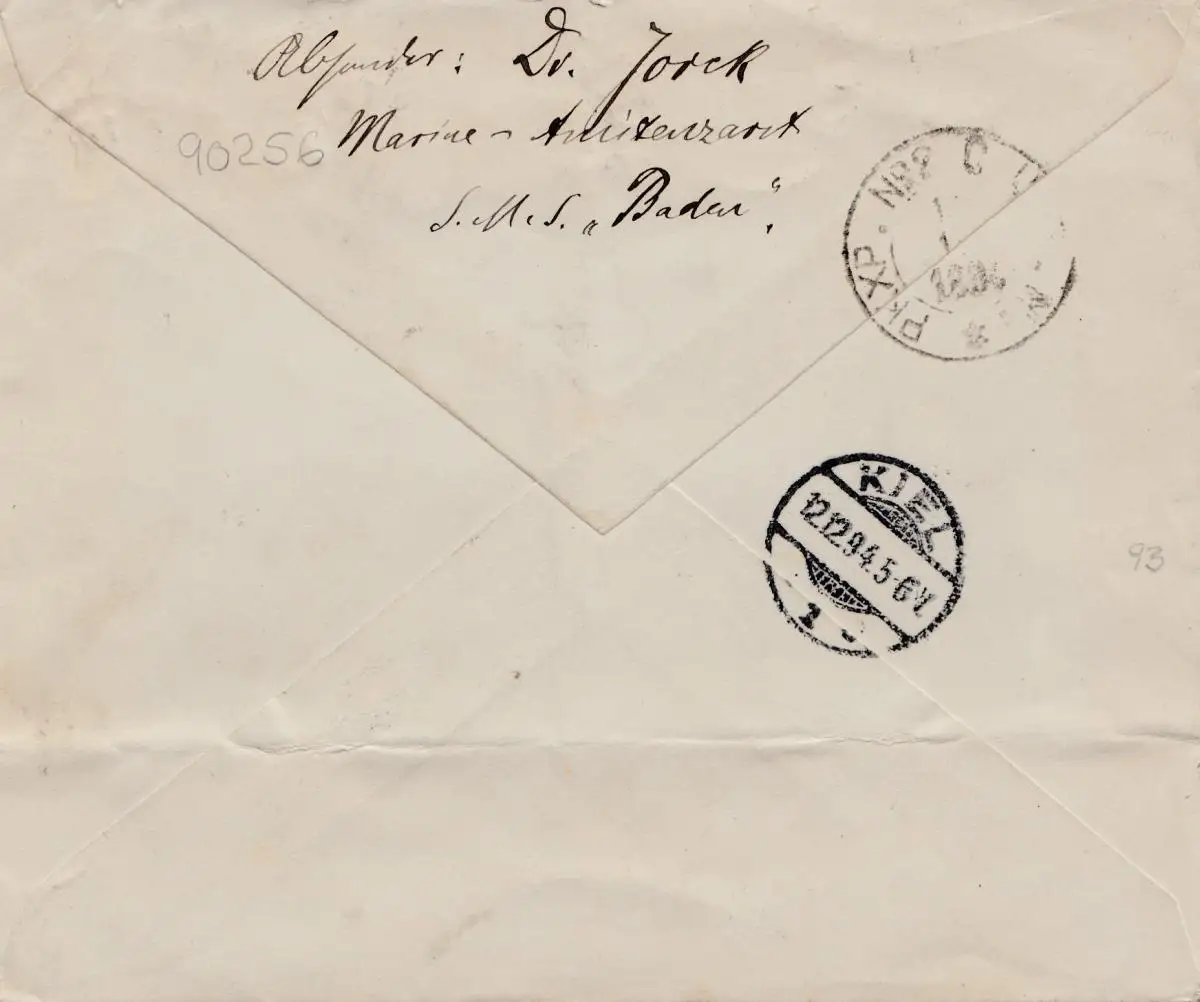 Absender: Dr. Jorck
Marine-Assistenzarzt
S.M.S. „Baden“.
90256
PKXP. No 2
1894
KIEL
12.12.94.5-6V.
1
93